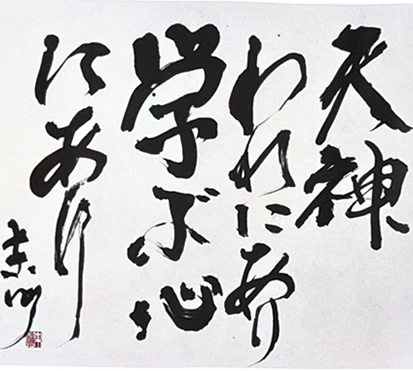 天神
われにあり
学ぶ心
にあり